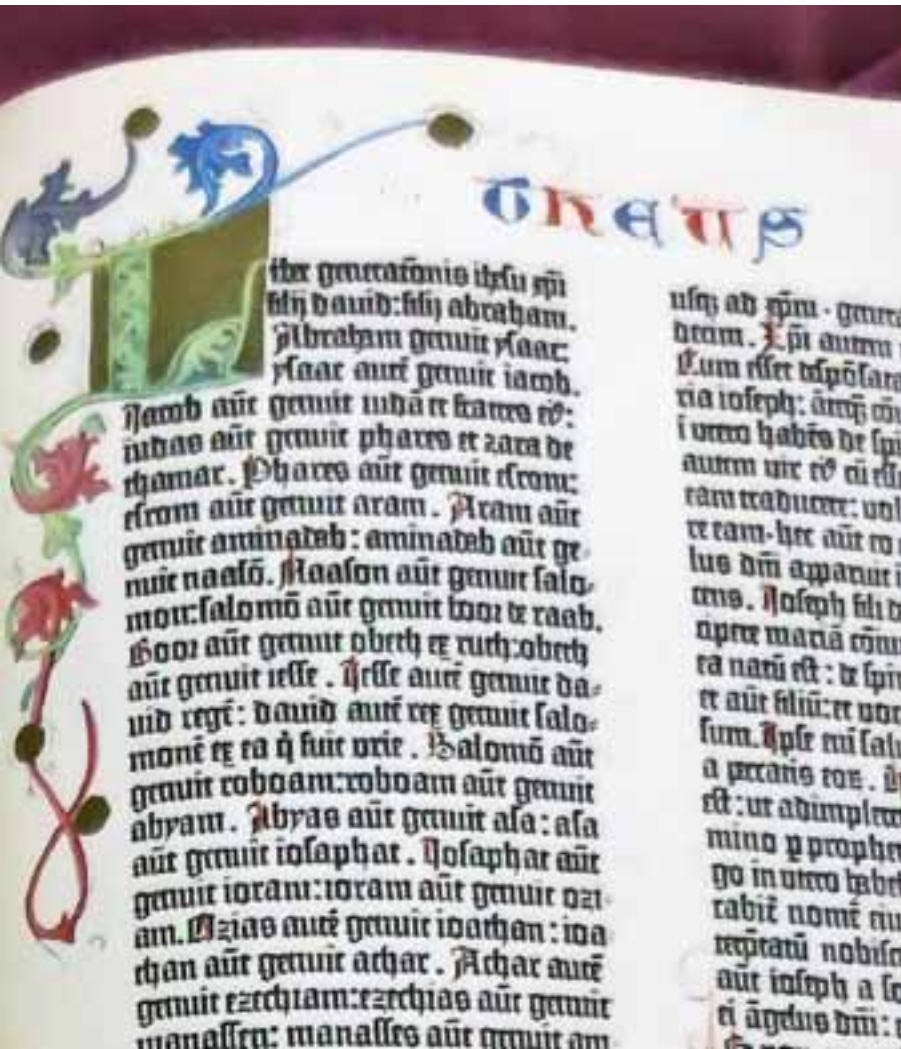 THEUS
Liber generatōnis ihesu xp̄i
filij dauid: filij abraham.
Abraham genuit ysaac:
ysaac autē genuit iacob.
Jacob aūt genuit iudā et fratres eiꝰ:
iudas aūt genuit phares et zara de
thamar. Phares aūt genuit esrom:
esrom aūt genuit aram. Aram aūt
genuit aminadab: aminadab aūt ge-
nuit naasō. Naason aūt genuit salo-
mon: salomō aūt genuit booz de raab.
Booz aūt genuit obeth ex ruth: obeth
aūt genuit iesse. Jesse autē genuit da-
uid regē: dauid autē rex genuit salo-
monē ex ea q̄ fuit vrie. Salomō aūt
genuit roboam: roboam aūt genuit
abyam. Abyas aūt genuit asa: asa
aūt genuit iosaphat. Josaphat aūt
genuit ioram: ioram aūt genuit ozi-
am. Ozias autē genuit ioathan: ioa-
than aūt genuit achaz. Achaz autē
genuit ezechiam: ezechias aūt genuit
manassen: manasses aūt genuit am
usqꝫ ad xp̄m · genera
decim. Xp̄i autem
Cum esset despōsata
ria ioseph: āteqꝫ cō
īuento habēs de spi
autem vir eiꝰ cū
eam traducere: uol
re eam · hec aūt eo
lus dn̄i apparuit i
cens. Joseph fili d
apere mariā cōiu
ea natū est: de spir
et aūt filiū: et voc
sum. Ipse em̄ salu
a peccatis eoꝝ.
est: ut adimplere
mino ꝑ prophe
go in utero habeb
cabūt nomē eiu
terp̄tatū nobisc
aūt ioseph a so
ei āgelus dn̄i: